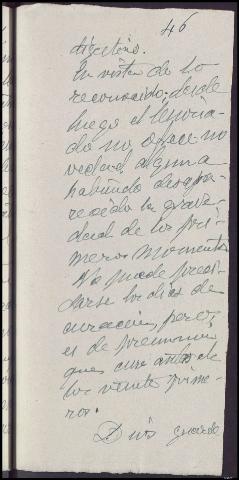 46
digestivo.
En vista de lo
reconocido, desde
luego el lesiona-
do no ofrece no
vedad alguna
habiendo desapa-
recido la grave-
dad de los pri-
meros momentos
No puede preci-
sarse los días de
curación, pero
es de presumir
que cure antes de
los veinte prime-
ros.
Dios guarde